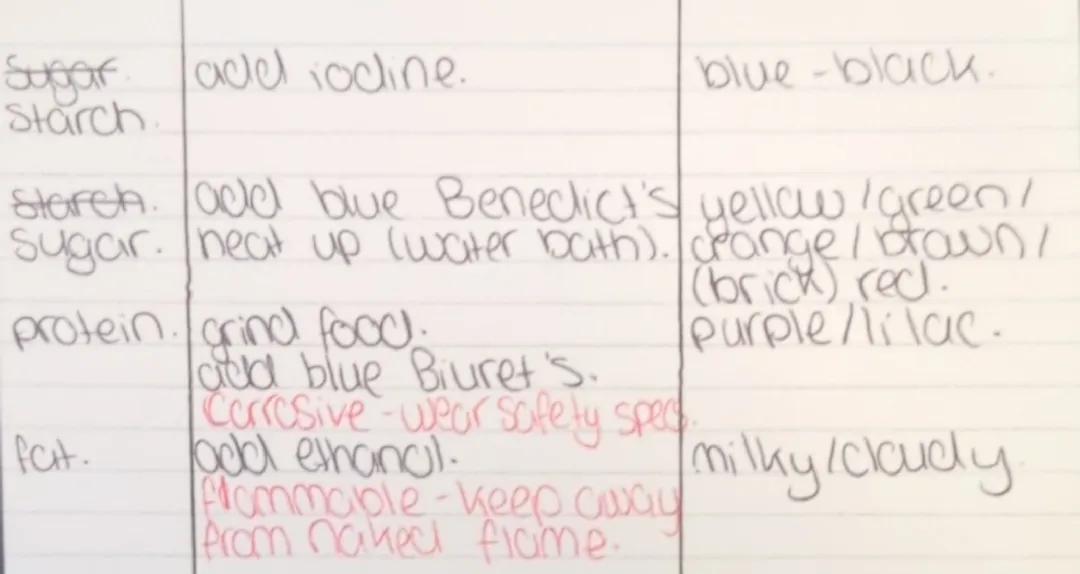 Sugar. add iodine. blue-black.
Starch.
Starch. add blue Benedict's yellow/green/
sugar. heat up (water bath). orange/brown/
(brick) red.
protein. grind food. purple/lilac.
add blue Biuret's.
Corrosive - wear safety specs.
fat. add ethanol. milky/cloudy.
flammable - keep away
from naked flame.